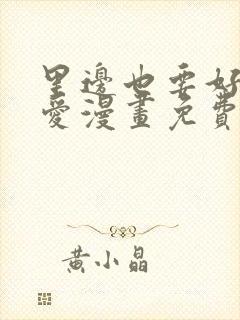 里邊也要好
愛漫畫免費
黃小晶